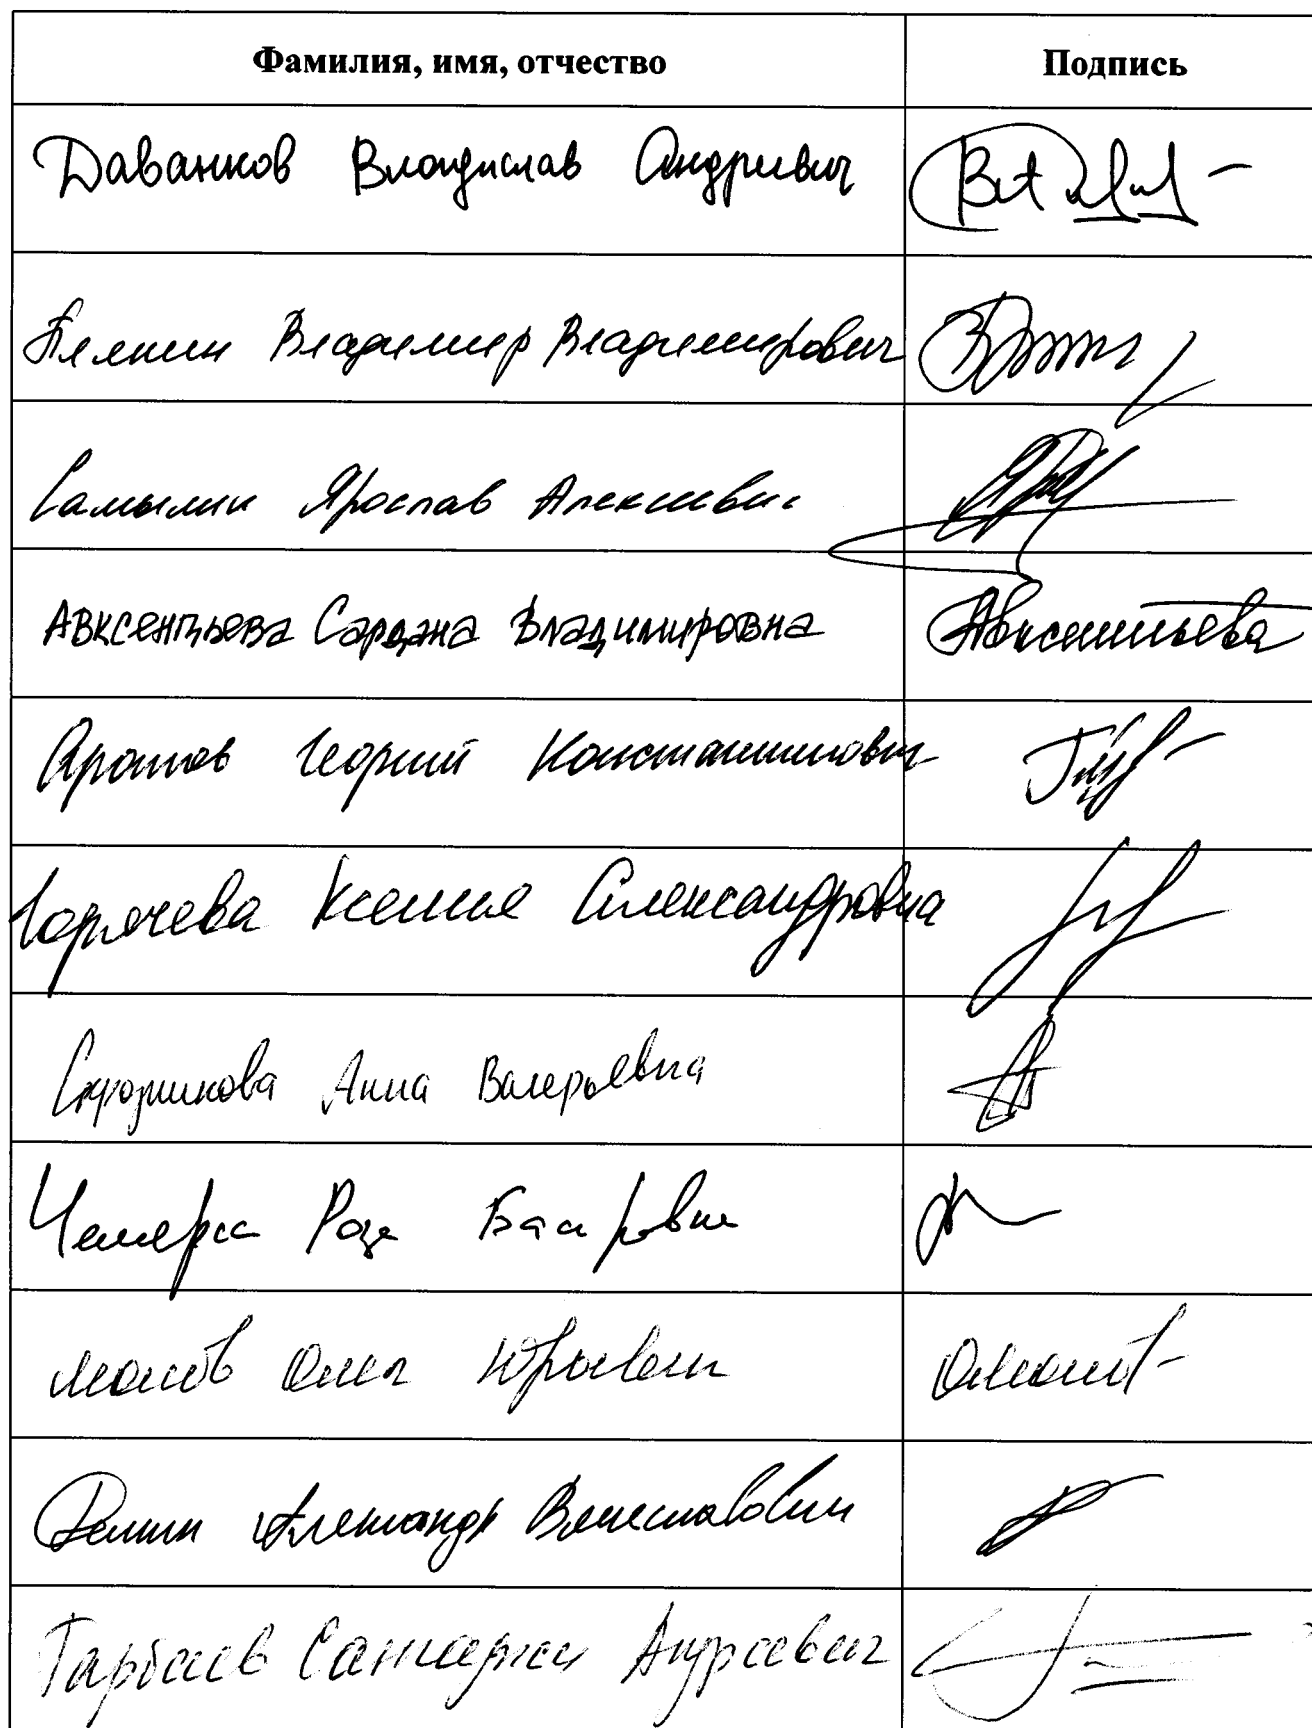 Фамилия, имя, отчество Подпись
Даванков Владислав Андреевич
Плякин Владимир Владимирович
Самылин Ярослав Алексеевич
Авксентьева Сардана Владимировна Авксентьева
Арапов Георгий Константинович
Горячева Ксения Александровна
Скрозникова Анна Валерьевна
Чемерис Роза Басировна
Леонов Олег Юрьевич
Демин Александр Вячеславович
Тарбаев Сангаджи Андреевич